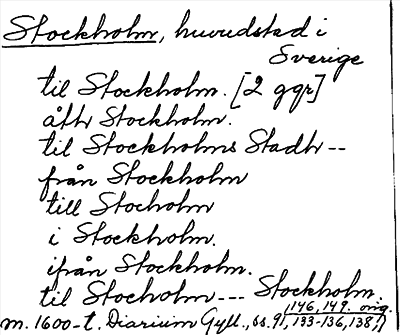 Stockholm, huvudstad i
Sverige
til Stockholm. [2 ggr]
åthr Stockholm.
til Stockholms Stadh --
från Stockholm
till Stocholm
i Stockholm.
ifrån Stockholm.
til Stocholm --- Stockholm.
146, 149. orig.
m. 1600-t. Diarium Gyll., ss. 91, 133-136, 138,